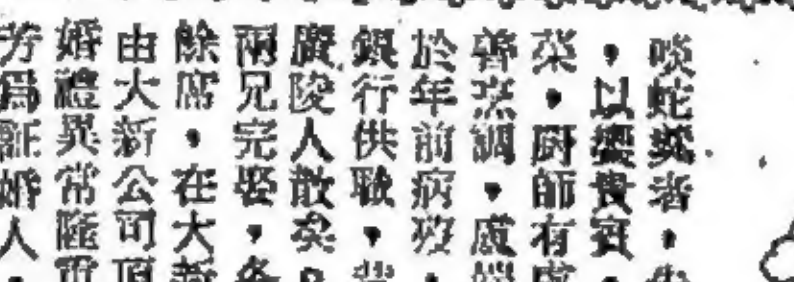 啖蛇羹者，
，以饗貴賓，
菜，廚師有處
善烹調，盧
於年前病歿，
銀行供職，
廣陵人散矣。
兩兄完娶，各
餘席，在大新
由大新公司頂
婚禮異常隆重
芳爲証婚人，